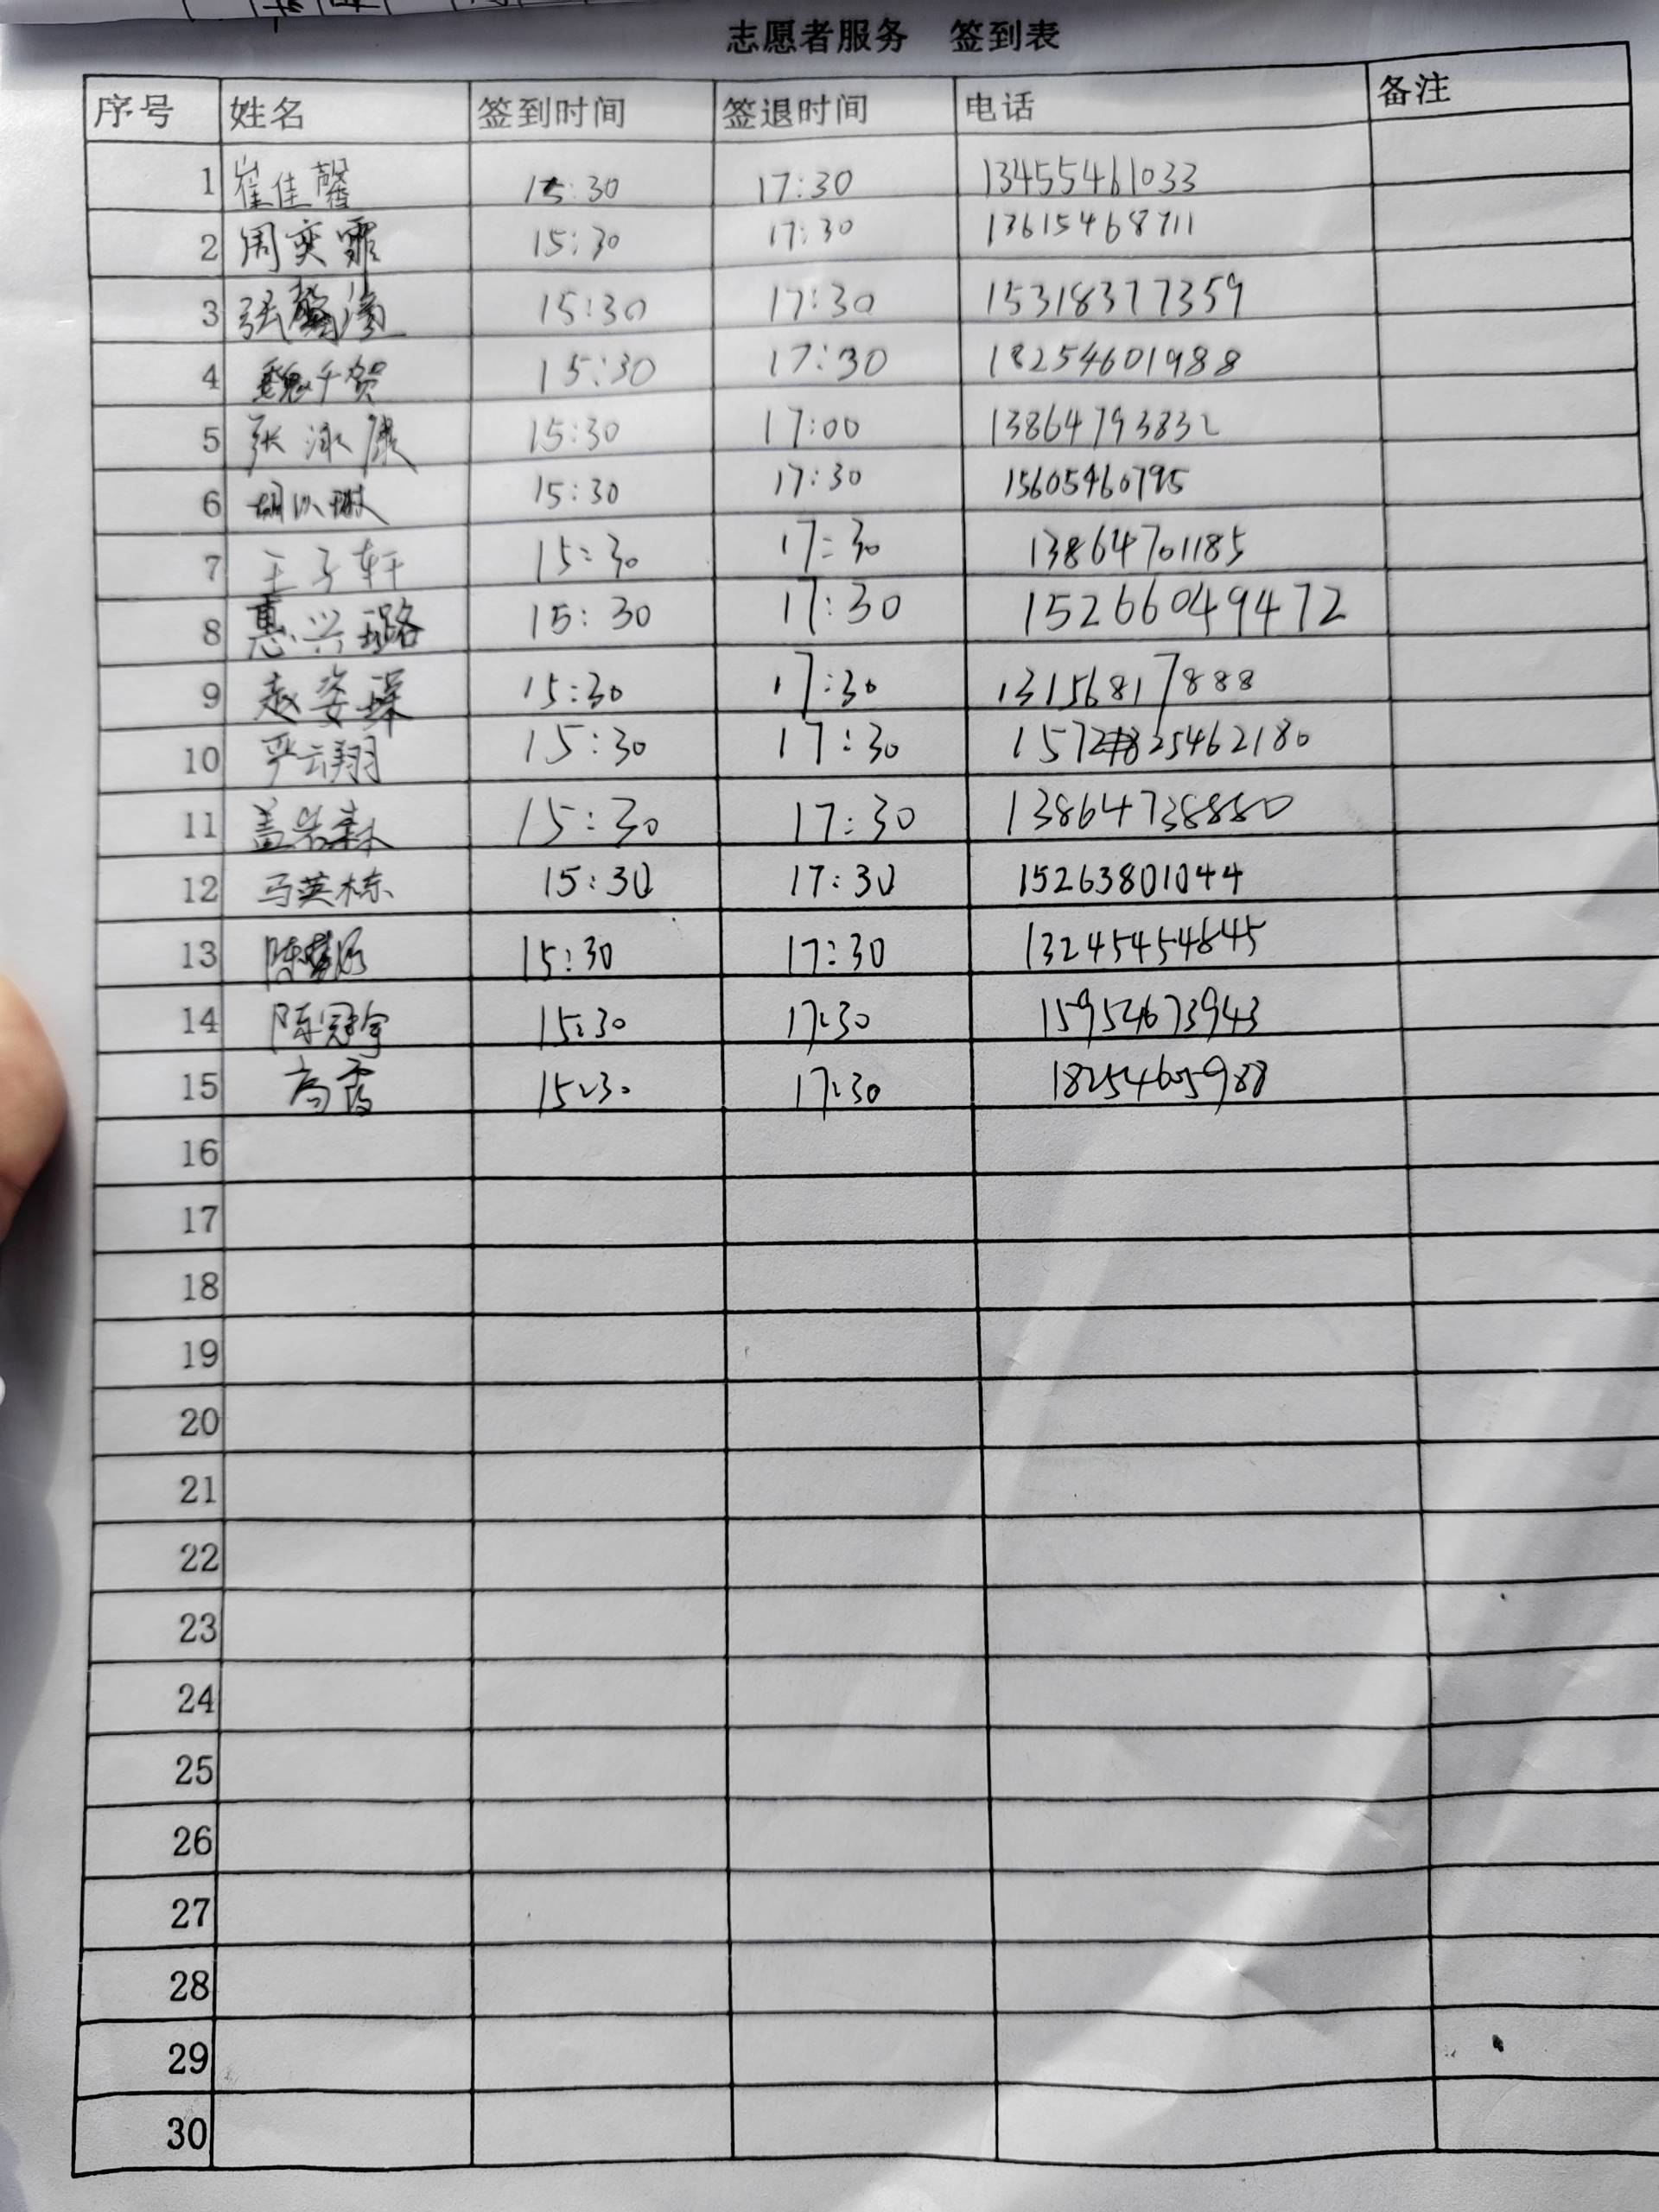 志愿者服务 签到表
序号 姓名 签到时间 签退时间 电话 备注
1 崔佳馨 15:30 17:30 13455461033
2 周奕霏 15:30 17:30 13615468711
3 张 15:30 17:30 15318377359
4 魏千贺 15:30 17:30 18254601988
5 张泳康 15:30 17:00 13864793832
6 胡 15:30 17:30 15605460795
7 王子轩 15:30 17:30 13864701185
8 惠兴璐 15:30 17:30 15266049472
9 赵姿琛 15:30 17:30 13156817888
10 严云翔 15:30 17:30
11 盖岩森 15:30 17:30 13864738880
12 马英栋 15:30 17:30 15263801044
13 陈 15:30 17:30
14 陈冠宇 15:30 17:30 15954673943
15 高霞 15:30 17:30 18254605988
16
17
18
19
20
21
22
23
24
25
26
27
28
29
30